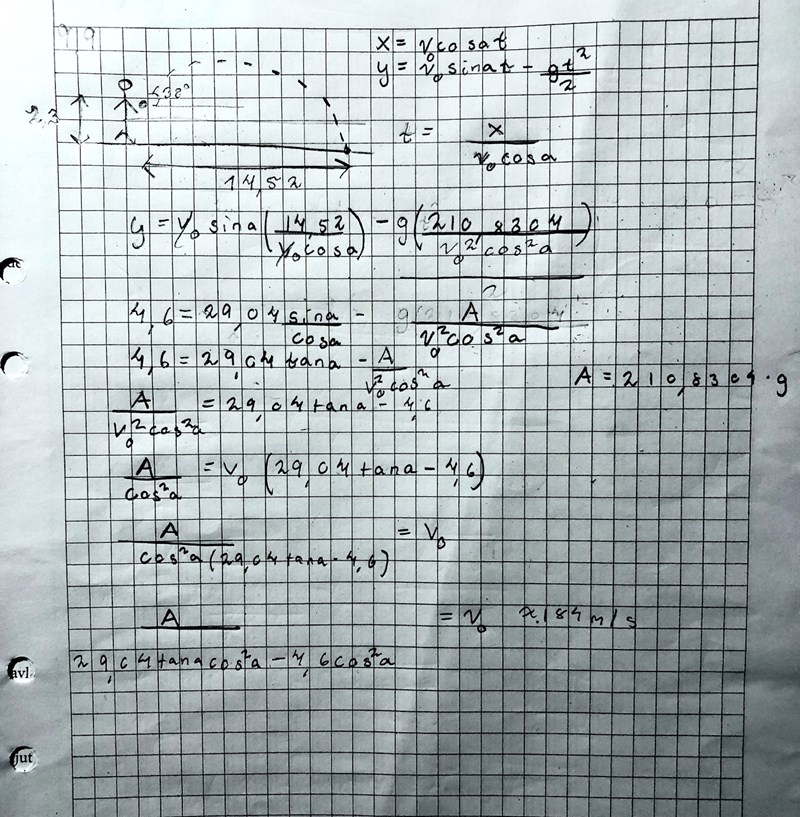 919
x = v₀cosat
y = v₀sinat - gt²/2
38°
2,3
t = x/(v₀cosa)
14,52
y = v₀ sina(14,52/(v₀cosa)) - g(210,8304/(v₀²cos²a))/2
4,6 = 29,04 sina/cosa - A/(v₀²cos²a)
4,6 = 29,04 tana - A/(v₀²cos²a)
A = 210,8304·g
A/(v₀²cos²a) = 29,04tana - 4,6
A/(cos²a) = v₀ (29,04 tana - 4,6)
A/(cos²a(29,04tana - 4,6)) = v₀
A/(29,04tanacos²a - 4,6cos²a) = v₀ ≈ 184 m/s
avl
jut